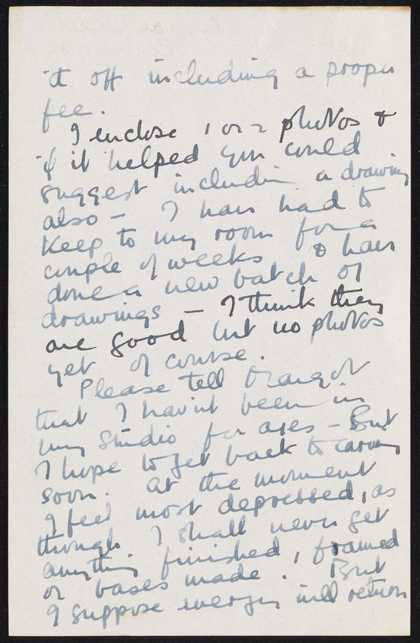 it off including a proper
fee.
I enclose 1 or 2 photos &
if it helped you could
suggest including a drawing
also — I have had to
keep to my room for a
couple of weeks & have
done a new batch of
drawings — I think they
are good but no photos
yet of course.
Please tell Margot
that I havn't been in
my studio for ages — But
I hope to get back to carving
soon. At the moment
I feel most depressed, as
though I shall never get
anything finished, framed
or bases made. But
I suppose energy will return